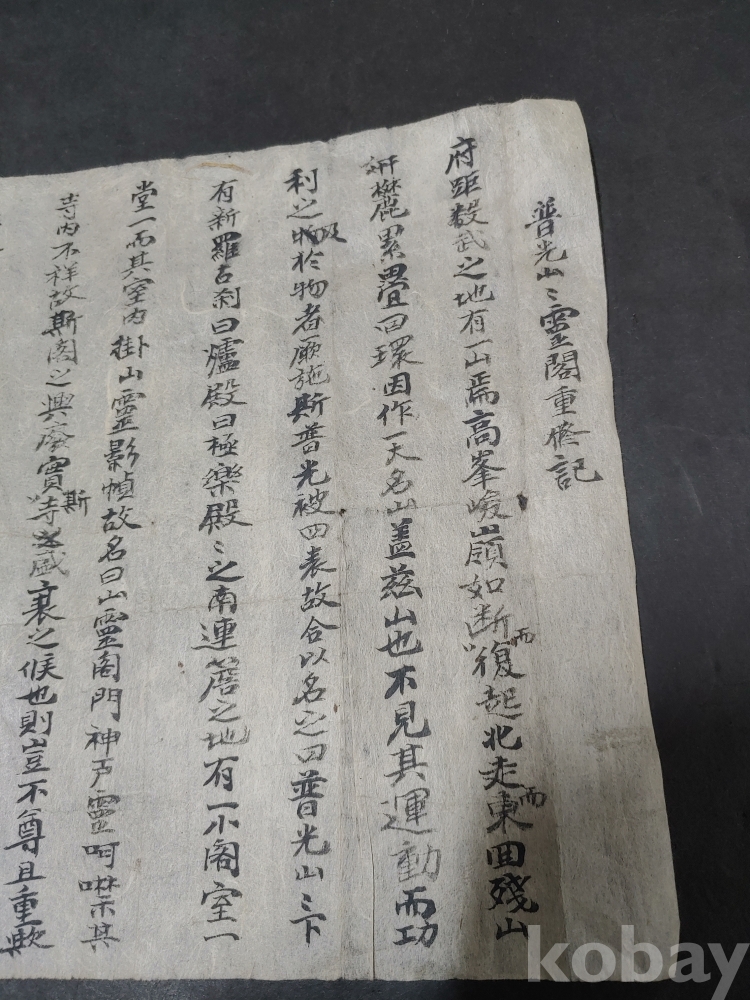 普光山〻靈閣重修記
府距数武之地有一山焉高峯峻嶺如断而復起北走而東回殘山
麓累疊回環因作一大名山盖兹山也不見其運動而功
利之及於物者廣施斯普光被四表故合以名之曰普光山〻下
有新羅古刹曰爐殿曰極樂殿〻之南連簷之地有一小閣室一
堂一而其室内掛山靈影幀故名曰山靈閣門神戶靈呵禁其
寺内不祥故斯閣之興廢實斯寺盛衰之候也則豈不尊且重歟
kobay